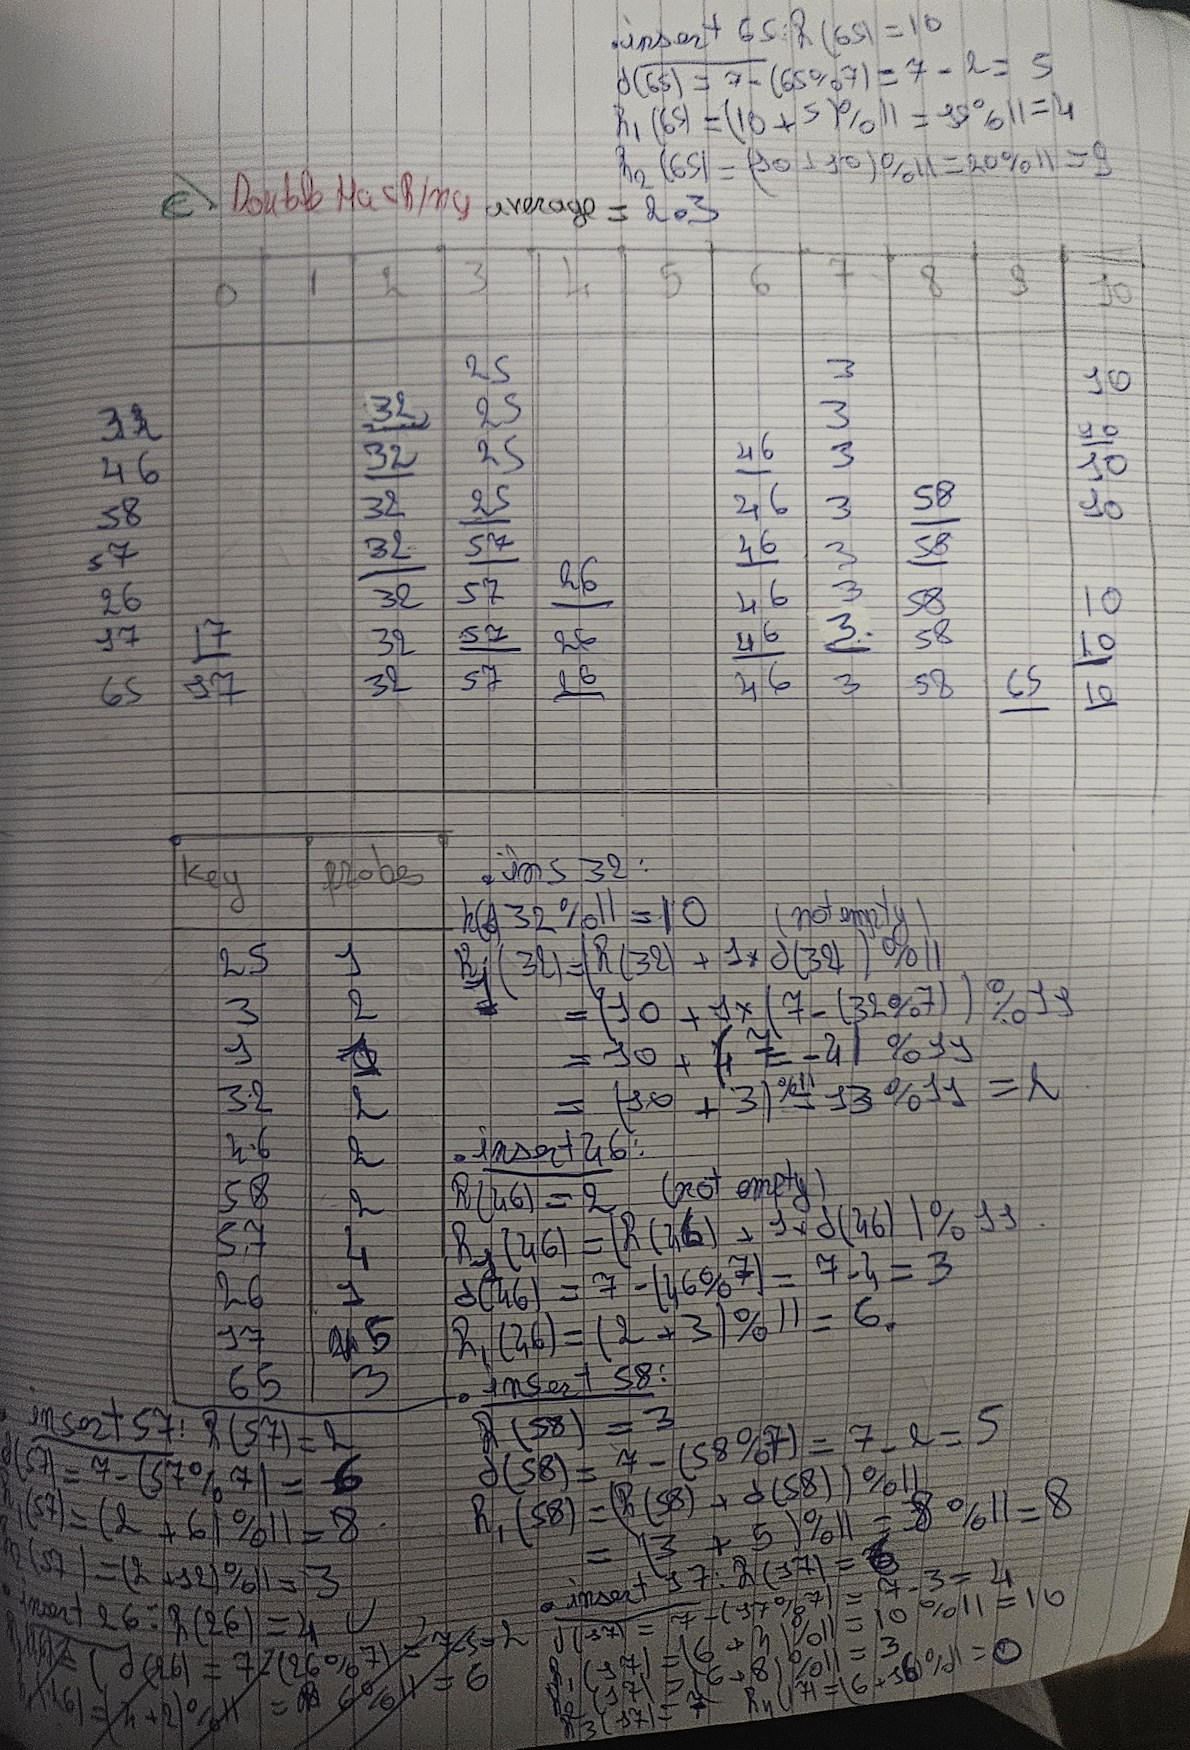 .insert 65: h(65) = 10
d(65) = 7-(65%7) = 7 - 2 = 5
h1(65) = (10 + 5)%11 = 15%11 = 4
h2(65) = (10 + 10)%11 = 20%11 = 9
c). Double Hashing average = 2.3
0 1 2 3 4 5 6 7 8 9 10
25 3 10
32 32 25 3 10
46 32 25 46 3 10
58 32 25 46 3 58 10
57 32 57 46 3 58
26 32 57 26 46 3 58 10
17 17 32 57 26 46 3 58 10
65 17 32 57 26 46 3 58 65 10
Key probes
25 1
3 2
1
32 2
46 2
58 2
57 4
26 1
17 5
65 3
.ins 32:
32%11 = 10 (not empty)
h1(32) = (h(32) + 1*d(32))%11
= (10 + 1*(7-(32%7))%11
= 10 + (7 - 4) %11
= (10 + 3)%11 = 13%11 = 2
.insert 46:
h(46) = 2 (not empty)
h1(46) = (h(46) + 1*d(46))%11.
d(46) = 7-(46%7) = 7-4 = 3
h1(46) = (2 + 3)%11 = 6.
.insert 58:
h(58) = 3
d(58) = 7-(58%7) = 7-2 = 5
h1(58) = (h(58) + d(58))%11
= (3 + 5)%11 = 8%11 = 8
.insert 57: h(57) = 2
d(57) = 7-(57%7) = 6
h1(57) = (2 + 6)%11 = 8.
h2(57) = (2+12)%11 = 3
.insert 26: h(26) = 4
d(26) = 7-(26%7) = 7-5 = 2
(4+2)%11 = 6%11 = 6
.insert 17: h(17) = 6
d(17) = 7-(17%7) = 7-3 = 4
h1(17) = (6+4)%11 = 10%11 = 10
h2(17) = (6+8)%11 = 3
h3(17) = 7 h4(17) = (6+16)%11 = 0